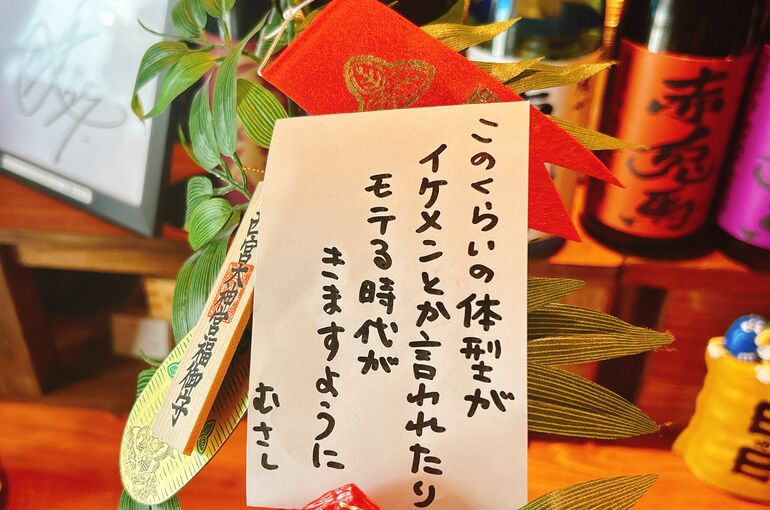 このくらいの体型が
イケメンとか言われたり
モテる時代が
きますように
むさし
宮大神宮福御守
赤兎馬